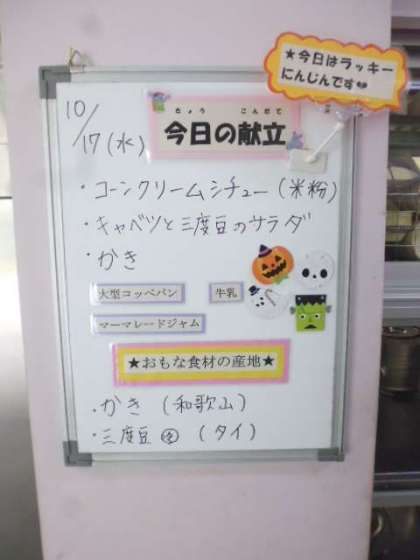 ★今日はラッキー
にんじんです♥
10/17(水)
きょう こんだて
今日の献立
・コーンクリームシチュー(米粉)
・キャベツと三度豆のサラダ
・かき
大型コッペパン 牛乳
マーマレードジャム
★おもな食材の産地★
・かき (和歌山)
・三度豆 (タイ)